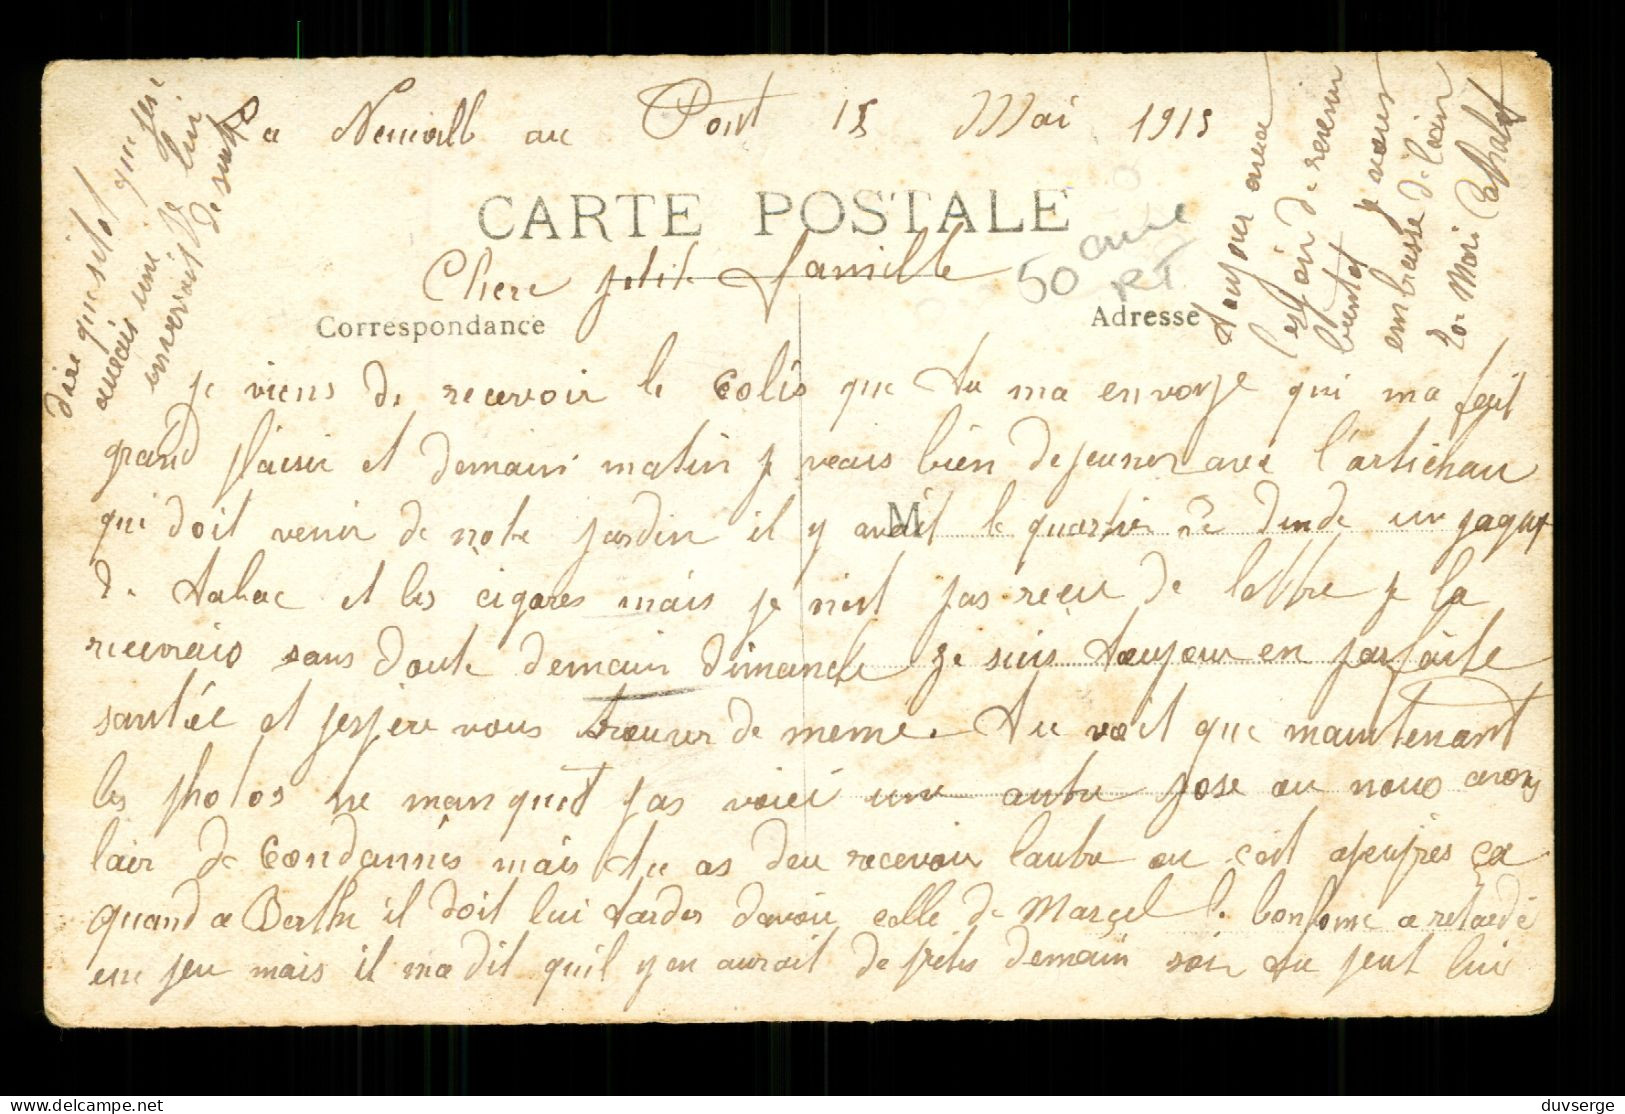 a Neuville au Pont 15 Mai 1915
CARTE POSTALE
Chere petite famille
50 RT
Correspondance
Adresse
je viens de recevoir le Colis que tu ma envoye qui ma feit
grand plaisir et demain matin je veais bien dejeuner avec l'artichau
qui doit venir de notre jardin il y avait le quartier de dinde un paquet
de tabac et les cigares mais je niest pas reçu de lettre je la
recevrais sans doute demain dimanche je suis toujour en parfaite
santée et jespère vous trouver de meme. tu voit que maintenant
les photos ne manquent pas voici une autre pose ou nous avons
lair de Condannés mais tu as deu recevoir lautre ou cest apeuprès ça
quand a Berthe il doit lui tarder davoir celle de Marcel le bonfome a retardé
un peu mais il ma dit quil y en aurait de prêtes demain soir tu peut lui
dire que sitot que jen
aurais une je lui
enverrais de suite
toujour avec
l'espoir de recevoir
bientot je vous
embrasse de loin
ton Mari
M
duvserge